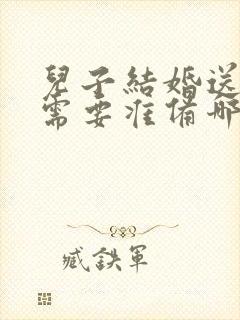 兒子結婚送
需要准備哪
臧鉄軍